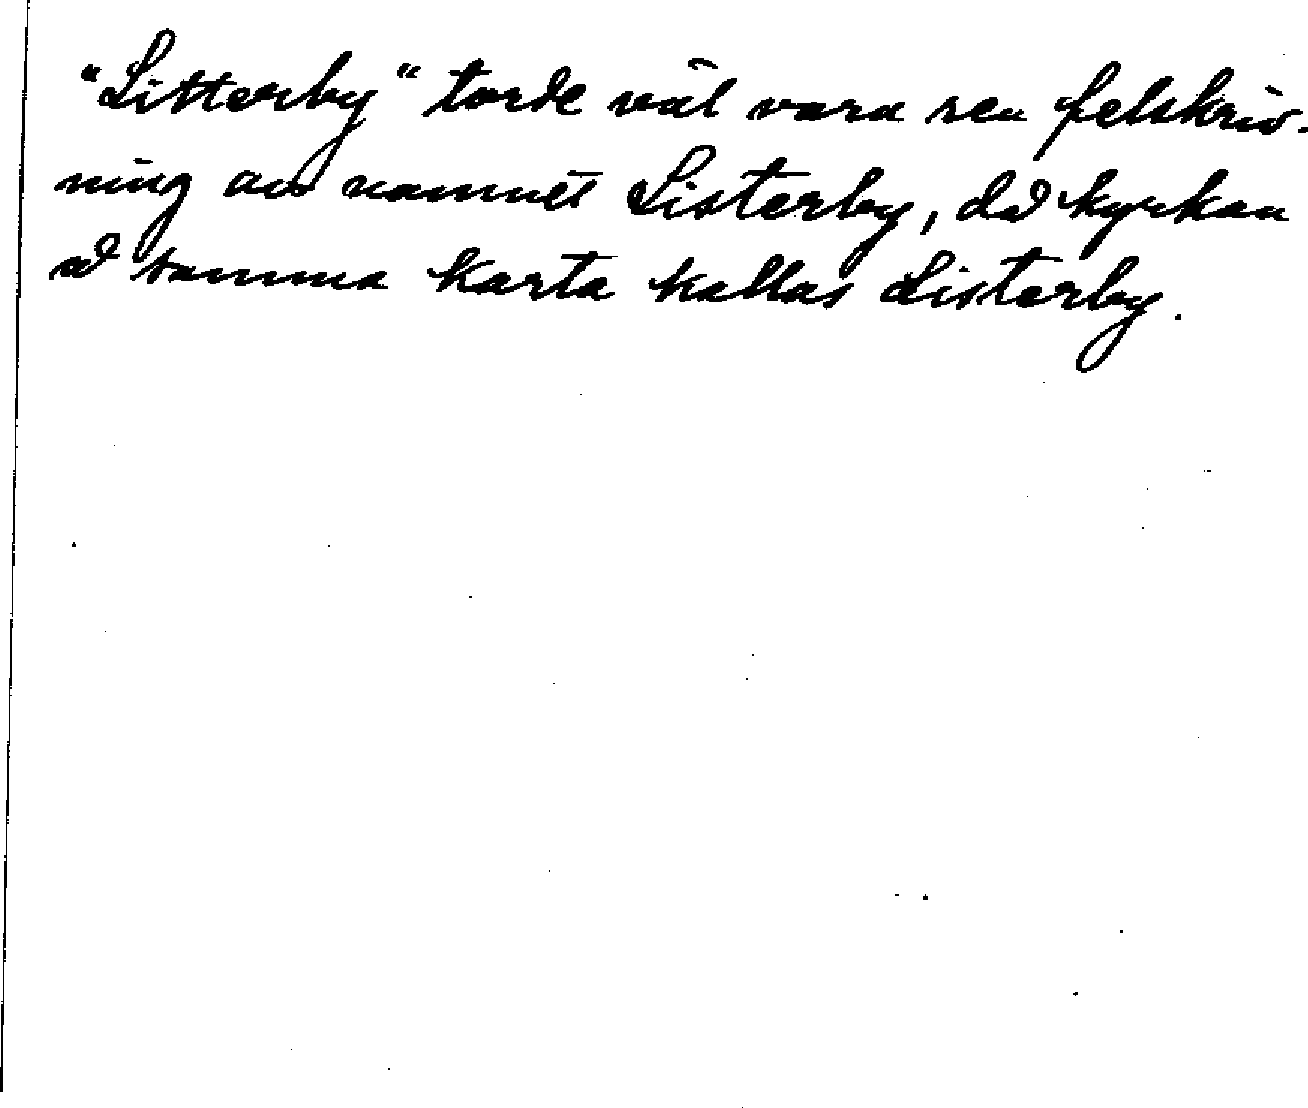 "Litterby" torde väl vara ren felskriv-
ning av namnet Listerby, då kyrkan
å samma karta kallas Listerby.